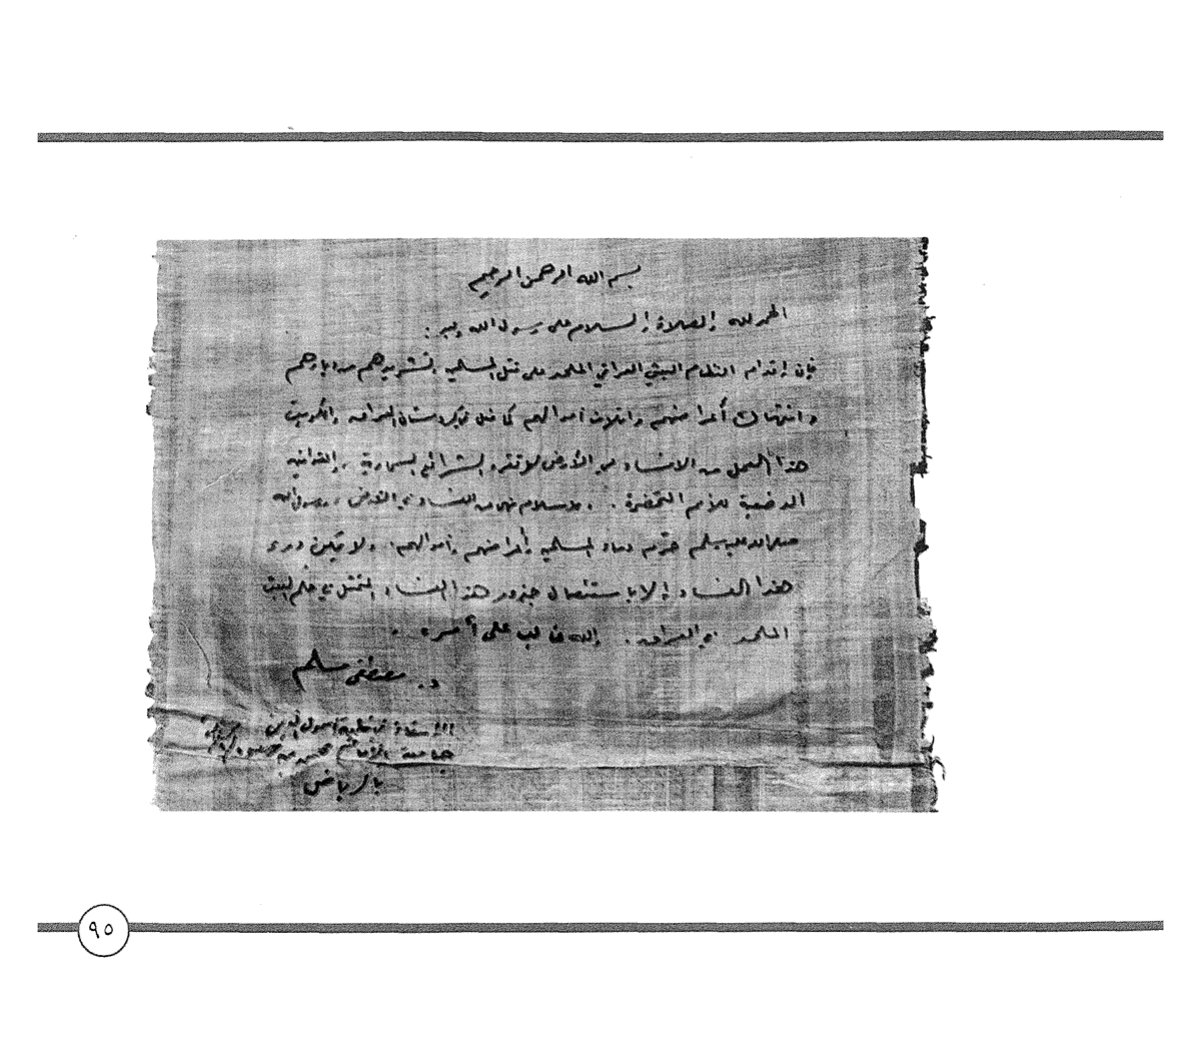 بسم الله الرحمن الرحيم
الحمد لله والصلاة والسلام على رسول الله وبعد :
فإن إقدام النظام البعثي العراقي الملحد على قتل المسلمين وتشريدهم من ديارهم
وانتهاك أعراضهم وإتلاف أموالهم كما فعل في كردستان العراق والكويت
هذا العمل من الافساد في الأرض لا تقره الشرائع السماوية . والقوانين
الوضعية للأمم المتحضرة . والاسلام نهى عن الفساد في الأرض ، ورسول الله
صلى الله عليه وسلم حرّم دماء المسلمين وأعراضهم وأموالهم . ولا يمكن درء
هذا الفساد إلا باستئصال جذور هذا الفساد المتمثل في حكم البعث
الملحد في العراق . والله غالب على أمره .
د . مصطفى مسلم
الأستاذ في كلية أصول الدين
جامعة الإمام محمد بن سعود
بالرياض
٩٥